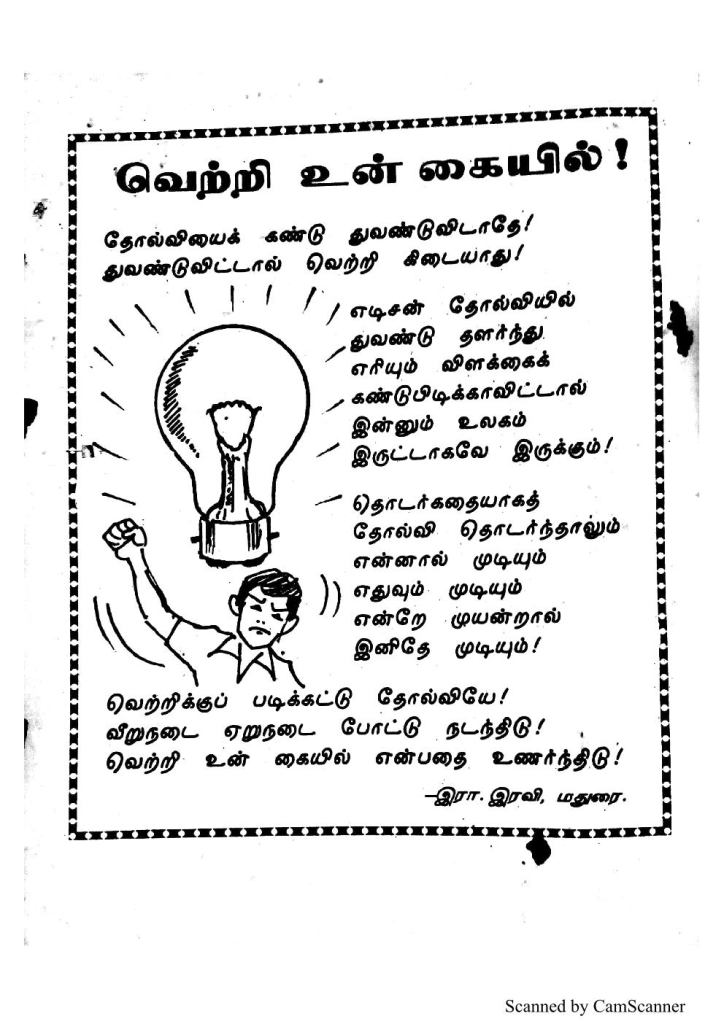 வெற்றி உன் கையில்!
தோல்வியைக் கண்டு துவண்டுவிடாதே!
துவண்டுவிட்டால் வெற்றி கிடையாது!
எடிசன் தோல்வியில்
துவண்டு தளர்ந்து
எரியும் விளக்கைக்
கண்டுபிடிக்காவிட்டால்
இன்னும் உலகம்
இருட்டாகவே இருக்கும்!
தொடர்கதையாகத்
தோல்வி தொடர்ந்தாலும்
என்னால் முடியும்
எதுவும் முடியும்
என்றே முயன்றால்
இனிதே முடியும்!
வெற்றிக்குப் படிக்கட்டு தோல்வியே!
வீறுநடை ஏறுநடை போட்டு நடந்திடு!
வெற்றி உன் கையில் என்பதை உணர்ந்திடு!
–இரா. இரவி, மதுரை.
Scanned by CamScanner